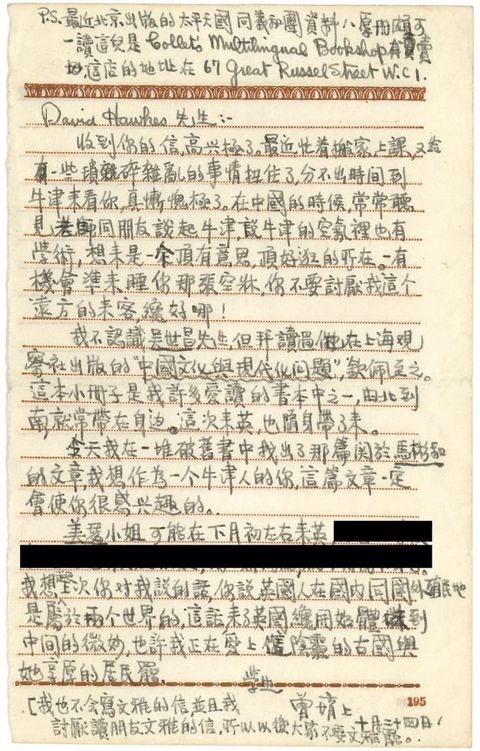 P.S. 最近北京出版的太平天國同義和團資料八厚冊頗可
一讀這兒是Collet's Multilingual Bookshop有賣
這店的地址在 67 Great Russel Street W.C.1.
David Hawkes 先生:-
收到你的信,高兴極了。最近忙着搬家上課,又給
一些瑣碎雜亂的事情扭住了,分不出時間到
牛津來看你,真慚愧極了。在中國的時候,常常聽
見老師同朋友談起牛津,說牛津的空氣裡也有
學術,想來是一个頂有意思,頂好逛的所在。一有
機會準來睡你那張空牀,你不要討厭我這个
遠方的來客,纔好哪!
我不認識吴世昌先生但拜讀過他在上海觀
察社出版的"中國文化與現代化問題",欽佩至之。
這本小冊子是我許多愛讀的書本中之一,由北到
南就常帶在身边。這次来英,也隨身帶了来。
今天我在一堆破舊書中找出了那篇関於馬彬和
的文章我想作為一个牛津人的你,這篇文章一定
會使你很感兴趣的。
美瑟小姐可能在下月初左右来英
我想上次你对我說的話,你說英國人在國内同國外殖民地
是屬於兩个世界的,這話来了英國纔開始體味到
中間的微妙,也許我正在愛上這陰霾的古國與
她享厚的居民罷。
學 曾堉上
十月廿四日
[我也不会寫文雅的信並且我
討厭讀朋友文雅的信,所以以後大家不要文雅罷。]
195